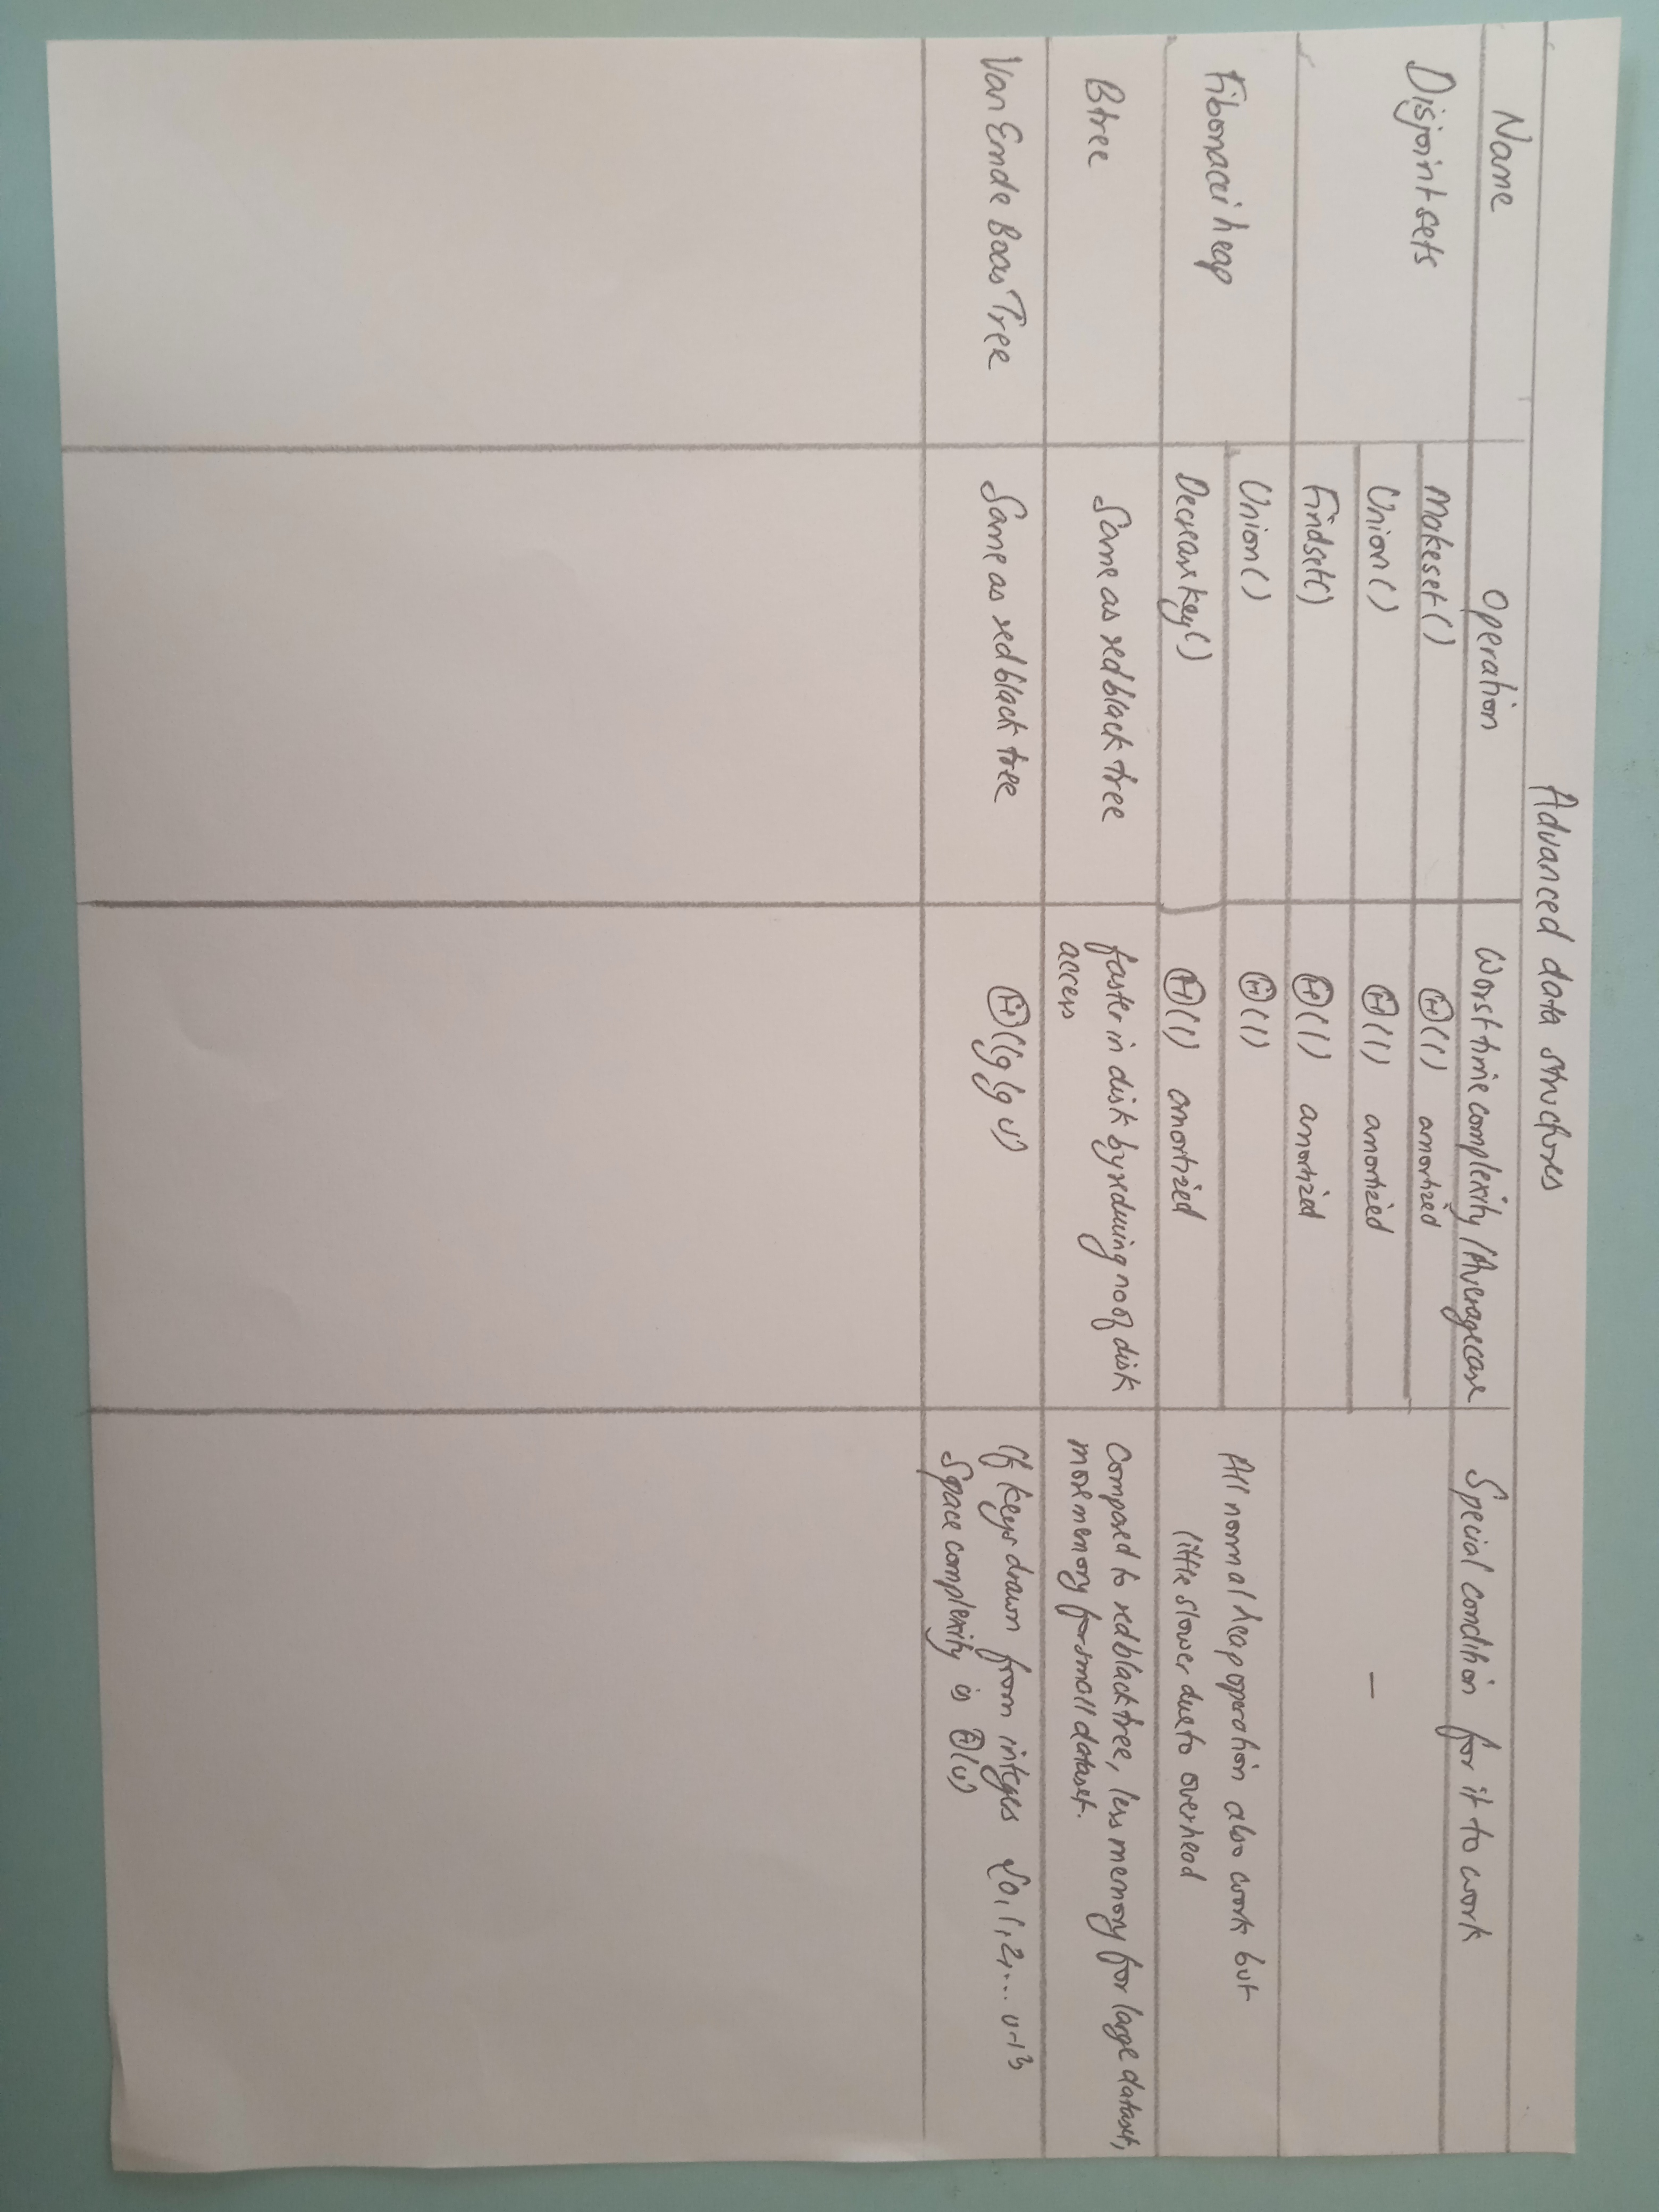 Advanced data structures
Name Operation Worst time complexity / Average case Special condition for it to work
Disjoint sets Makeset() Θ(1) amortized
Union() Θ(1) amortized —
Findset() Θ(1) amortized
Fibonacci heap Union() Θ(1) All normal heap operation also work but
Decreasekey() Θ(1) amortized little slower due to overhead
Btree Same as red black tree faster in disk by reducing no of disk Compared to red black tree, less memory for large dataset,
access more memory for small dataset.
Van Emde Boas Tree Same as red black tree Θ(lg lg u) If keys drawn from integes {0,1,2,... u-1}
Space complexity is Θ(u)